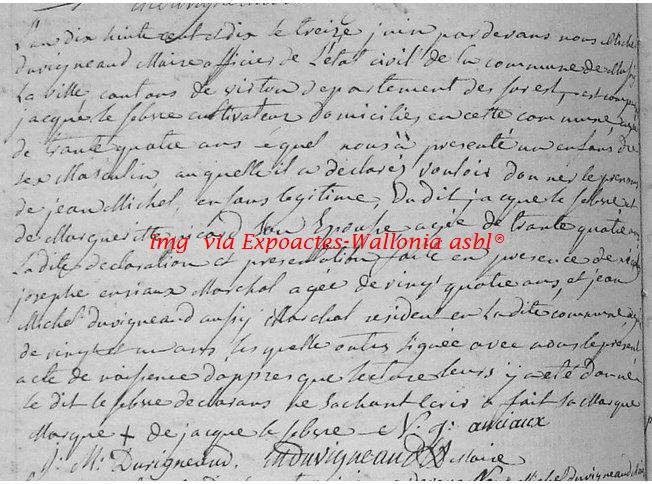 L'an dix huite cent et dix le treize juin par devans nous Michel
duvigneaud Maire officier de L'état civil de la commune de Mussy
La ville, cantons de virton departement des forest, est comparu
jacque le febvre cultivateur domiciliés en cette commune agée
de trante quatre ans e quel nous à presenté un enfans du
sex Masculin auquelle il a declarés vouloir donner le prenoms
de jean Michel, enfans legitime, Du dit jacque le febvre et
de Margueritte jicord Son Epouse agée de trante quatre ans
img via Expoactes-Wallonia asbl®
La dite declaration et presentation faite en presence de
josephe ansiaux Marchal agée de vingt quatre ans, et jean
Michel duvigneaud aussy Marchal resident en La dite commune agée
de vingtet un ans les quelle ontes signée avec nous le present
acte de naissence d'appres que lecture leurs y a été donnée
le dit le febvre declarans ne Sachant Ecrir à fait Sa Marque
Marque + de jacque le febvre N. j. anciaux
J. M. Duvigneaud. mduvigneaud Maire